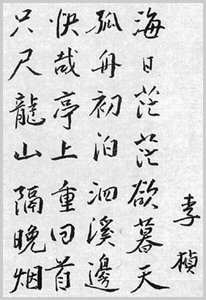 李楨
海日茫茫欲暮天
孤舟初泊泗溪邊
快哉亭上重回首
只尺龍山隔晚烟